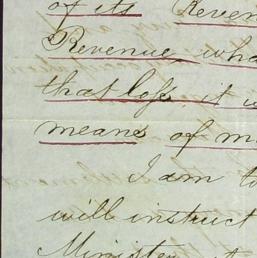 of its Reven
Revenue, wha
that loss it w
means of m
I am to
will instruct
Minister